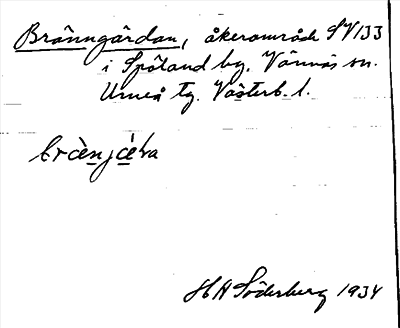 Bränngärdan, åkerområde SV 133
i Spöland by. Vännäs sn.
Umeå tg. Västerb. l.
brènjèra
H A Söderberg 1934